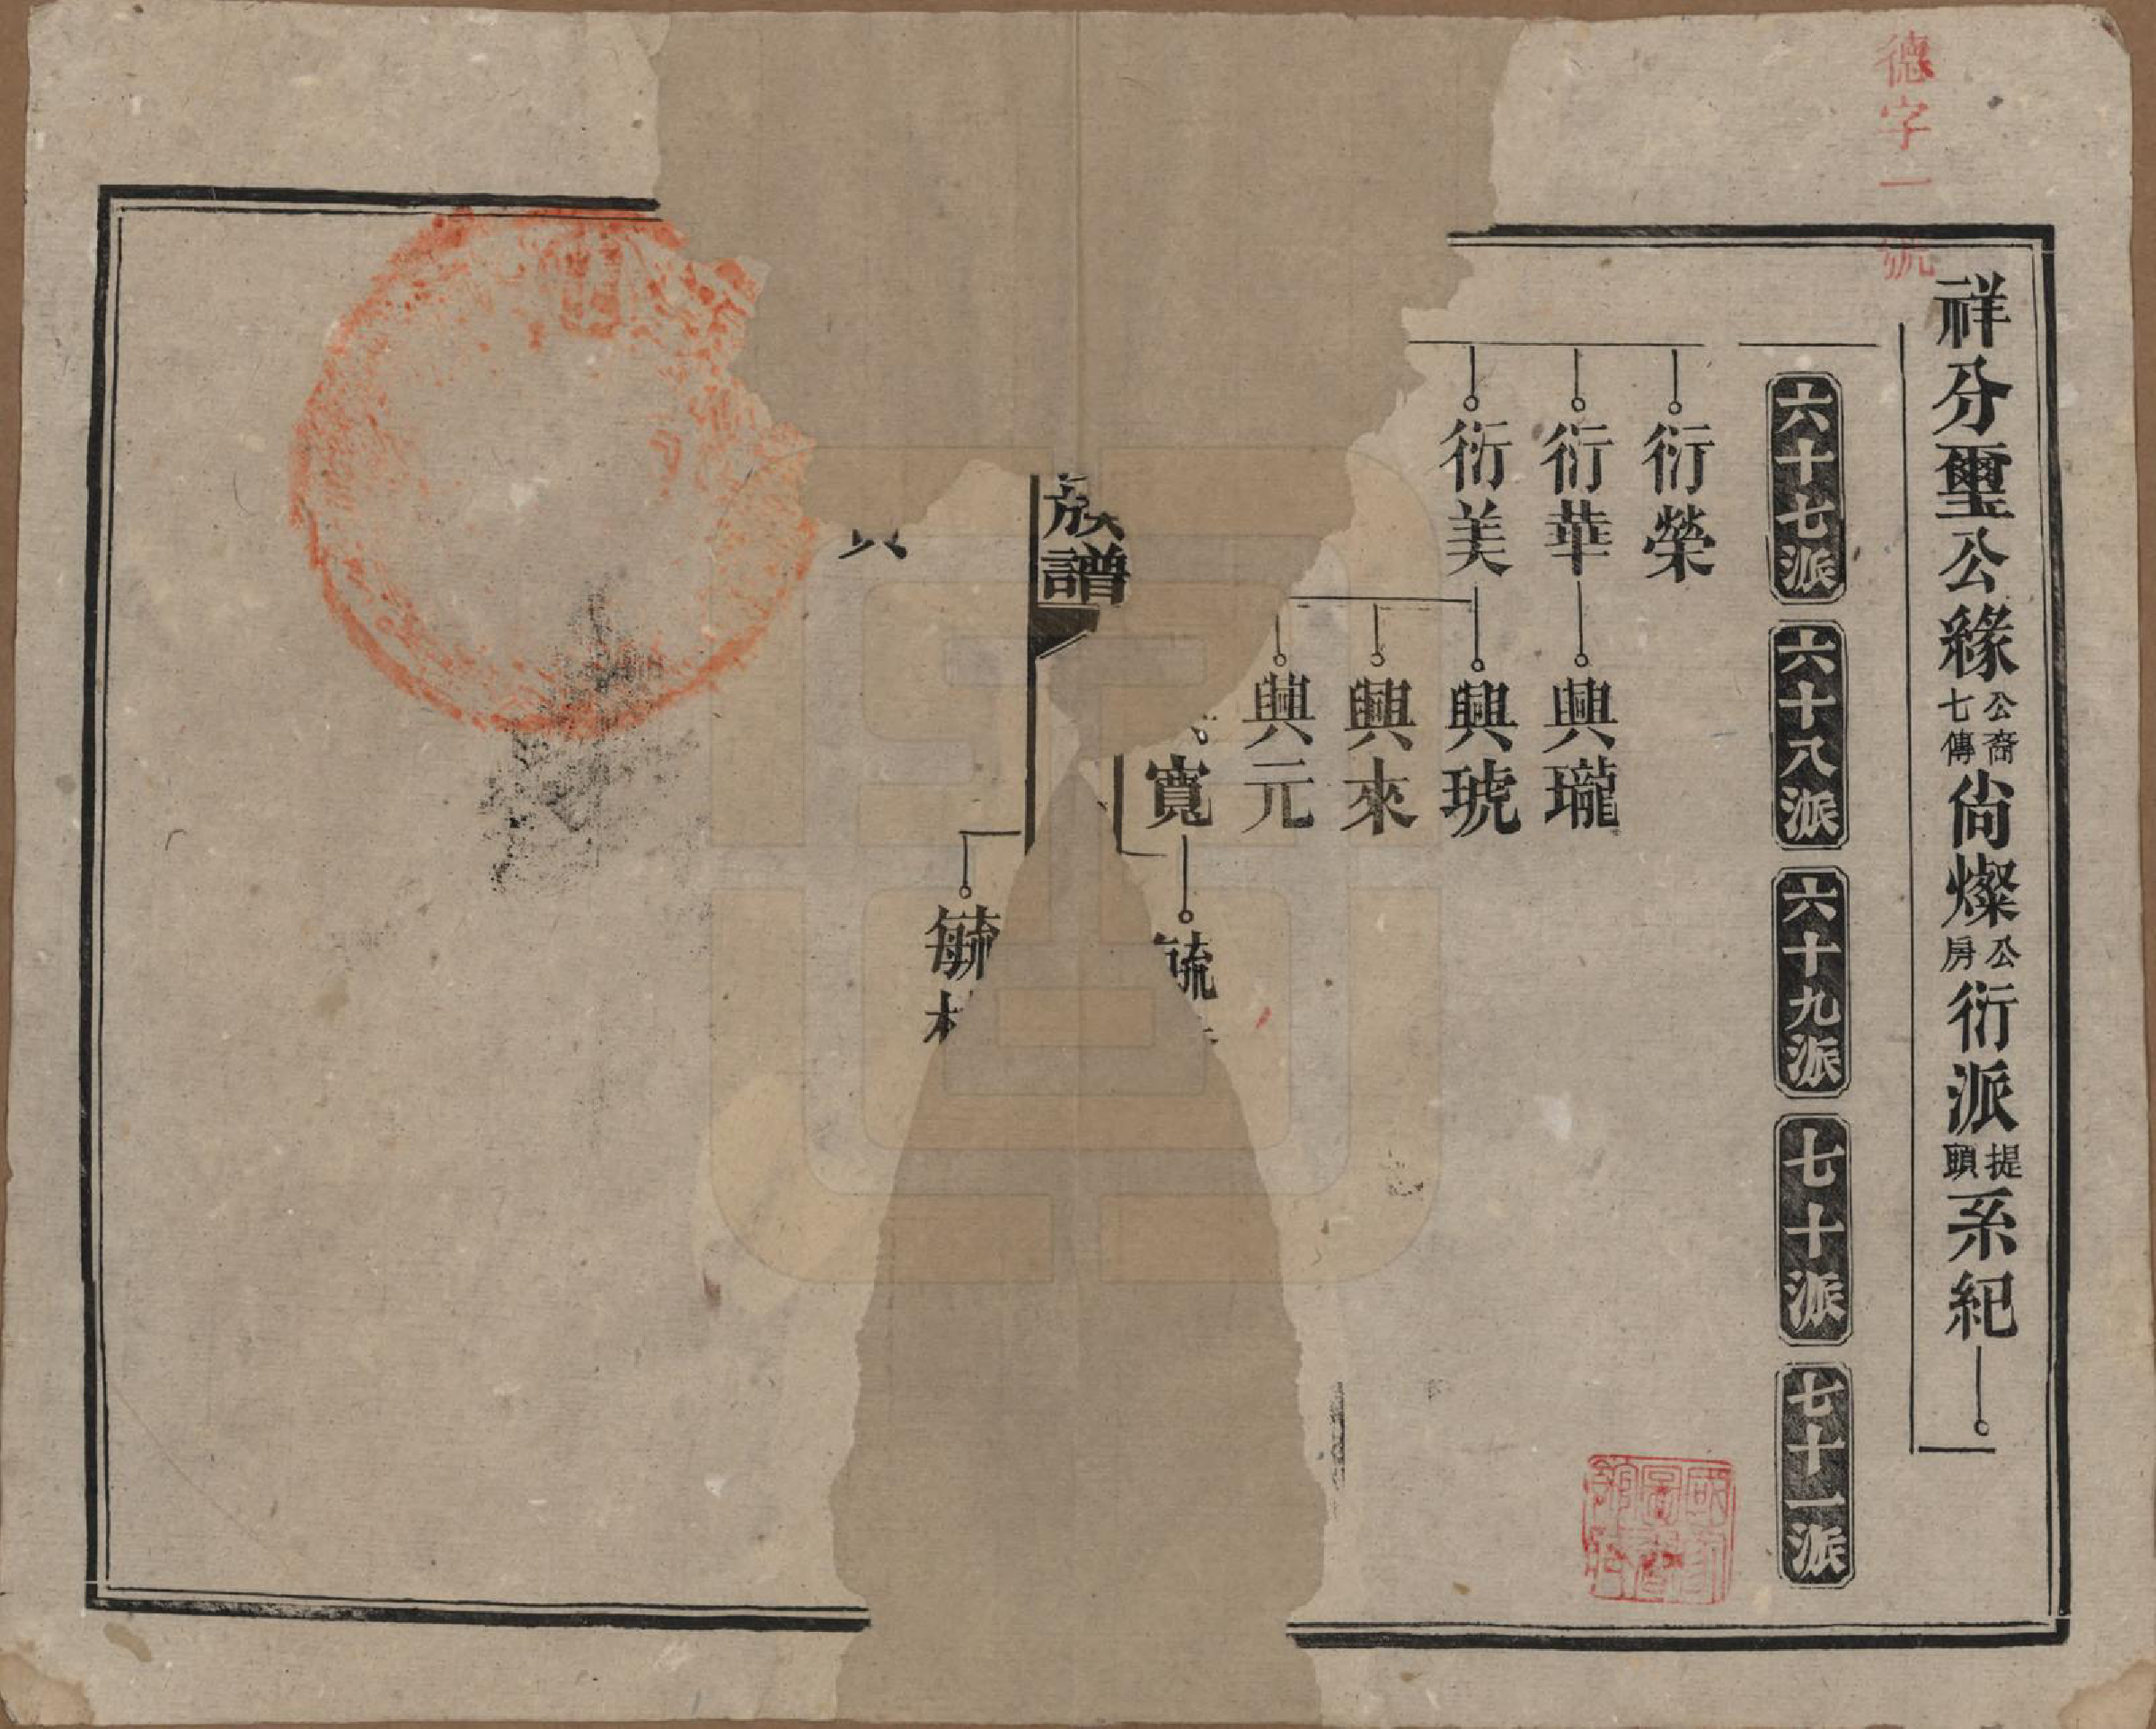 德字一號
祥分璽公緣公裔七傳尙燦公房衍派提頭系紀
六十七派
六十八派
六十九派
七十派
七十一派
衍榮
衍華
興瓏
衍美
興琥
興來
興元
寬
族譜
毓
國家圖書館藏